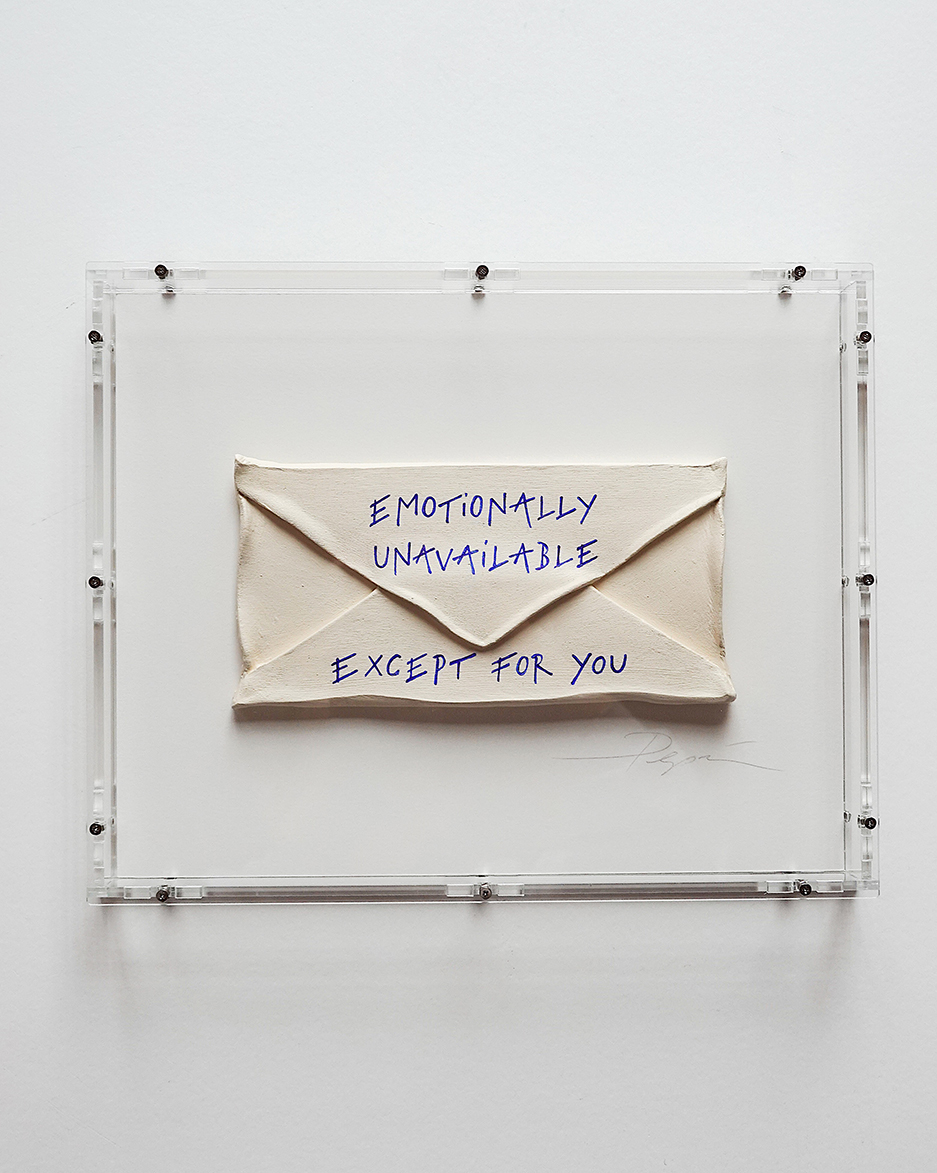 EMOTiONALLY
UNAVAiLABLE
EXCEPT FOR YOU